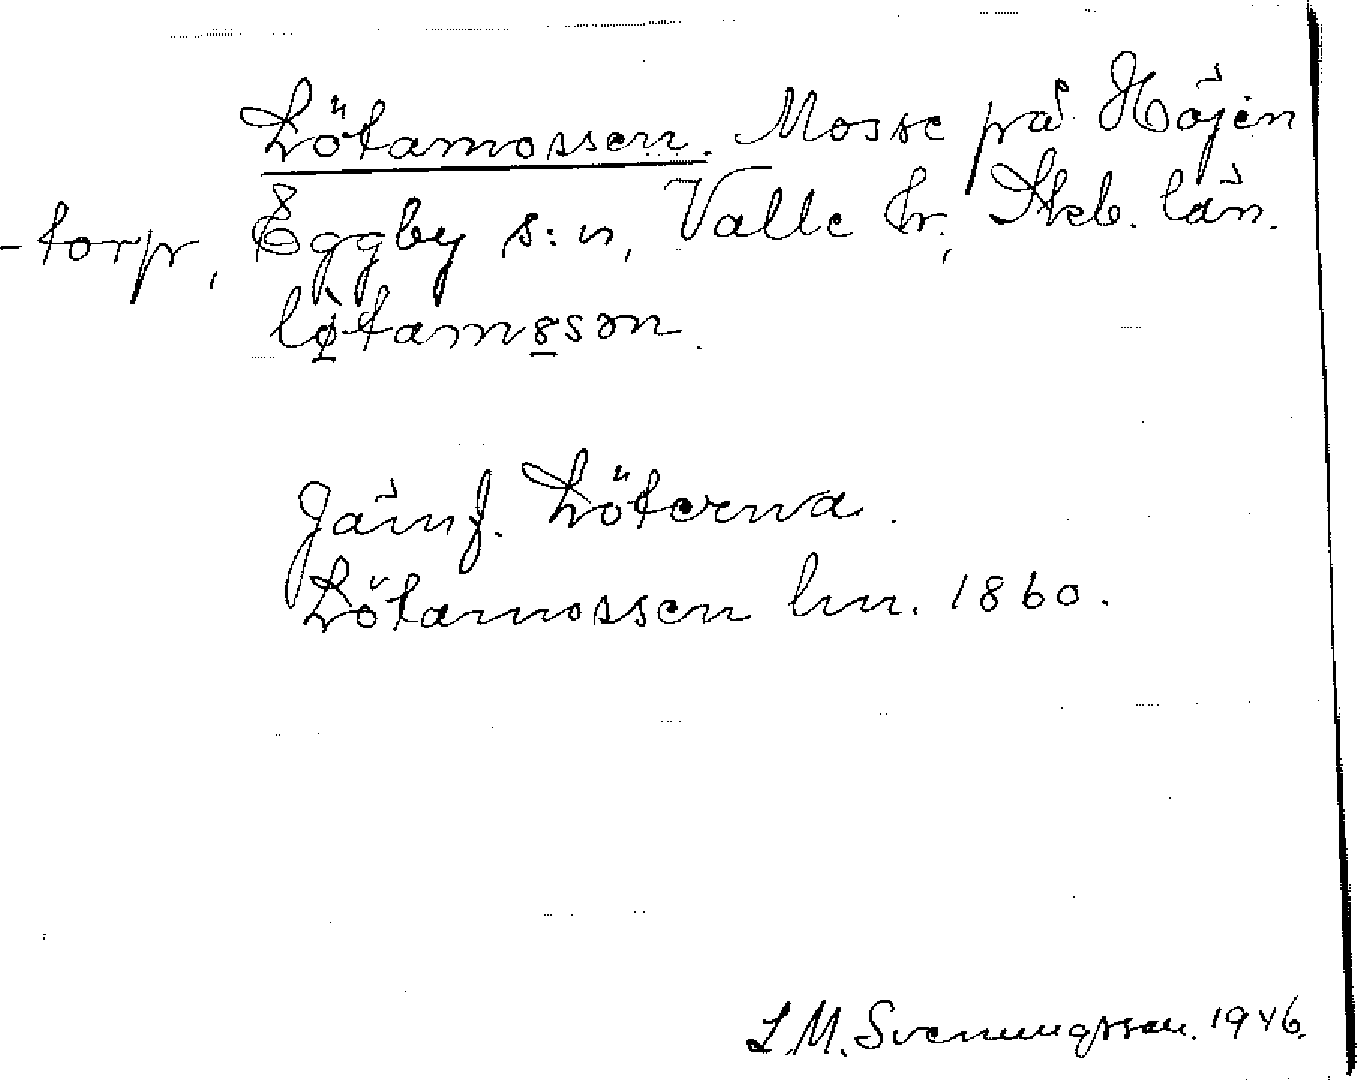 Lötamossen. Mosse på Höjen
-torp, Eggby s:n, Valle hr, Skb. län.
lø̱tamo̱sən.
Jämf. Löterna.
Lötamossen lm. 1860.
L.M. Svenungsson. 1946.